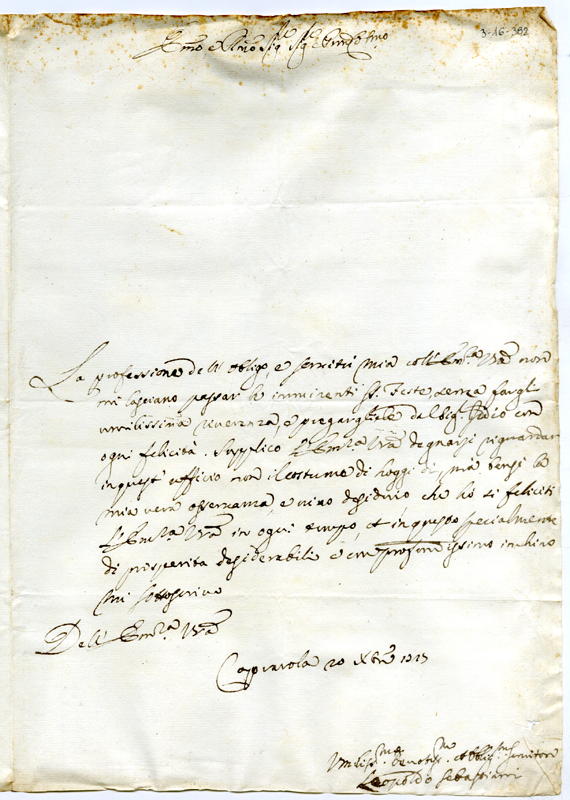 3-16-392
Em̃o e Rm̃o Sig.re Sig.re
La professione dell'obligo, e servitù mia coll'Em.za Vrã non
mi lasciano passar le imminenti SS. Feste senza fargli
umilissima reverenza e pregargliele dal Sig. Iddio con
ogni felicità. Supplico l'Em.za Vrã degnarsi riguardar
in quest'officio non il costume di hoggi dì, mà bensì la
mia vera osservanza, e vivo desiderio che hò si feliciti
l'Em.za Vrã in ogni tempo, et in questo specialmente
di prosperità desiderabili e con profondissimo inchino
mi sottoscrivo
Dell'Em.za Vrã
Caprarola 20 Xbre
Umiliss.mo Devotis.mo et Obblig.mo servitore
Leopoldo Sebastiani